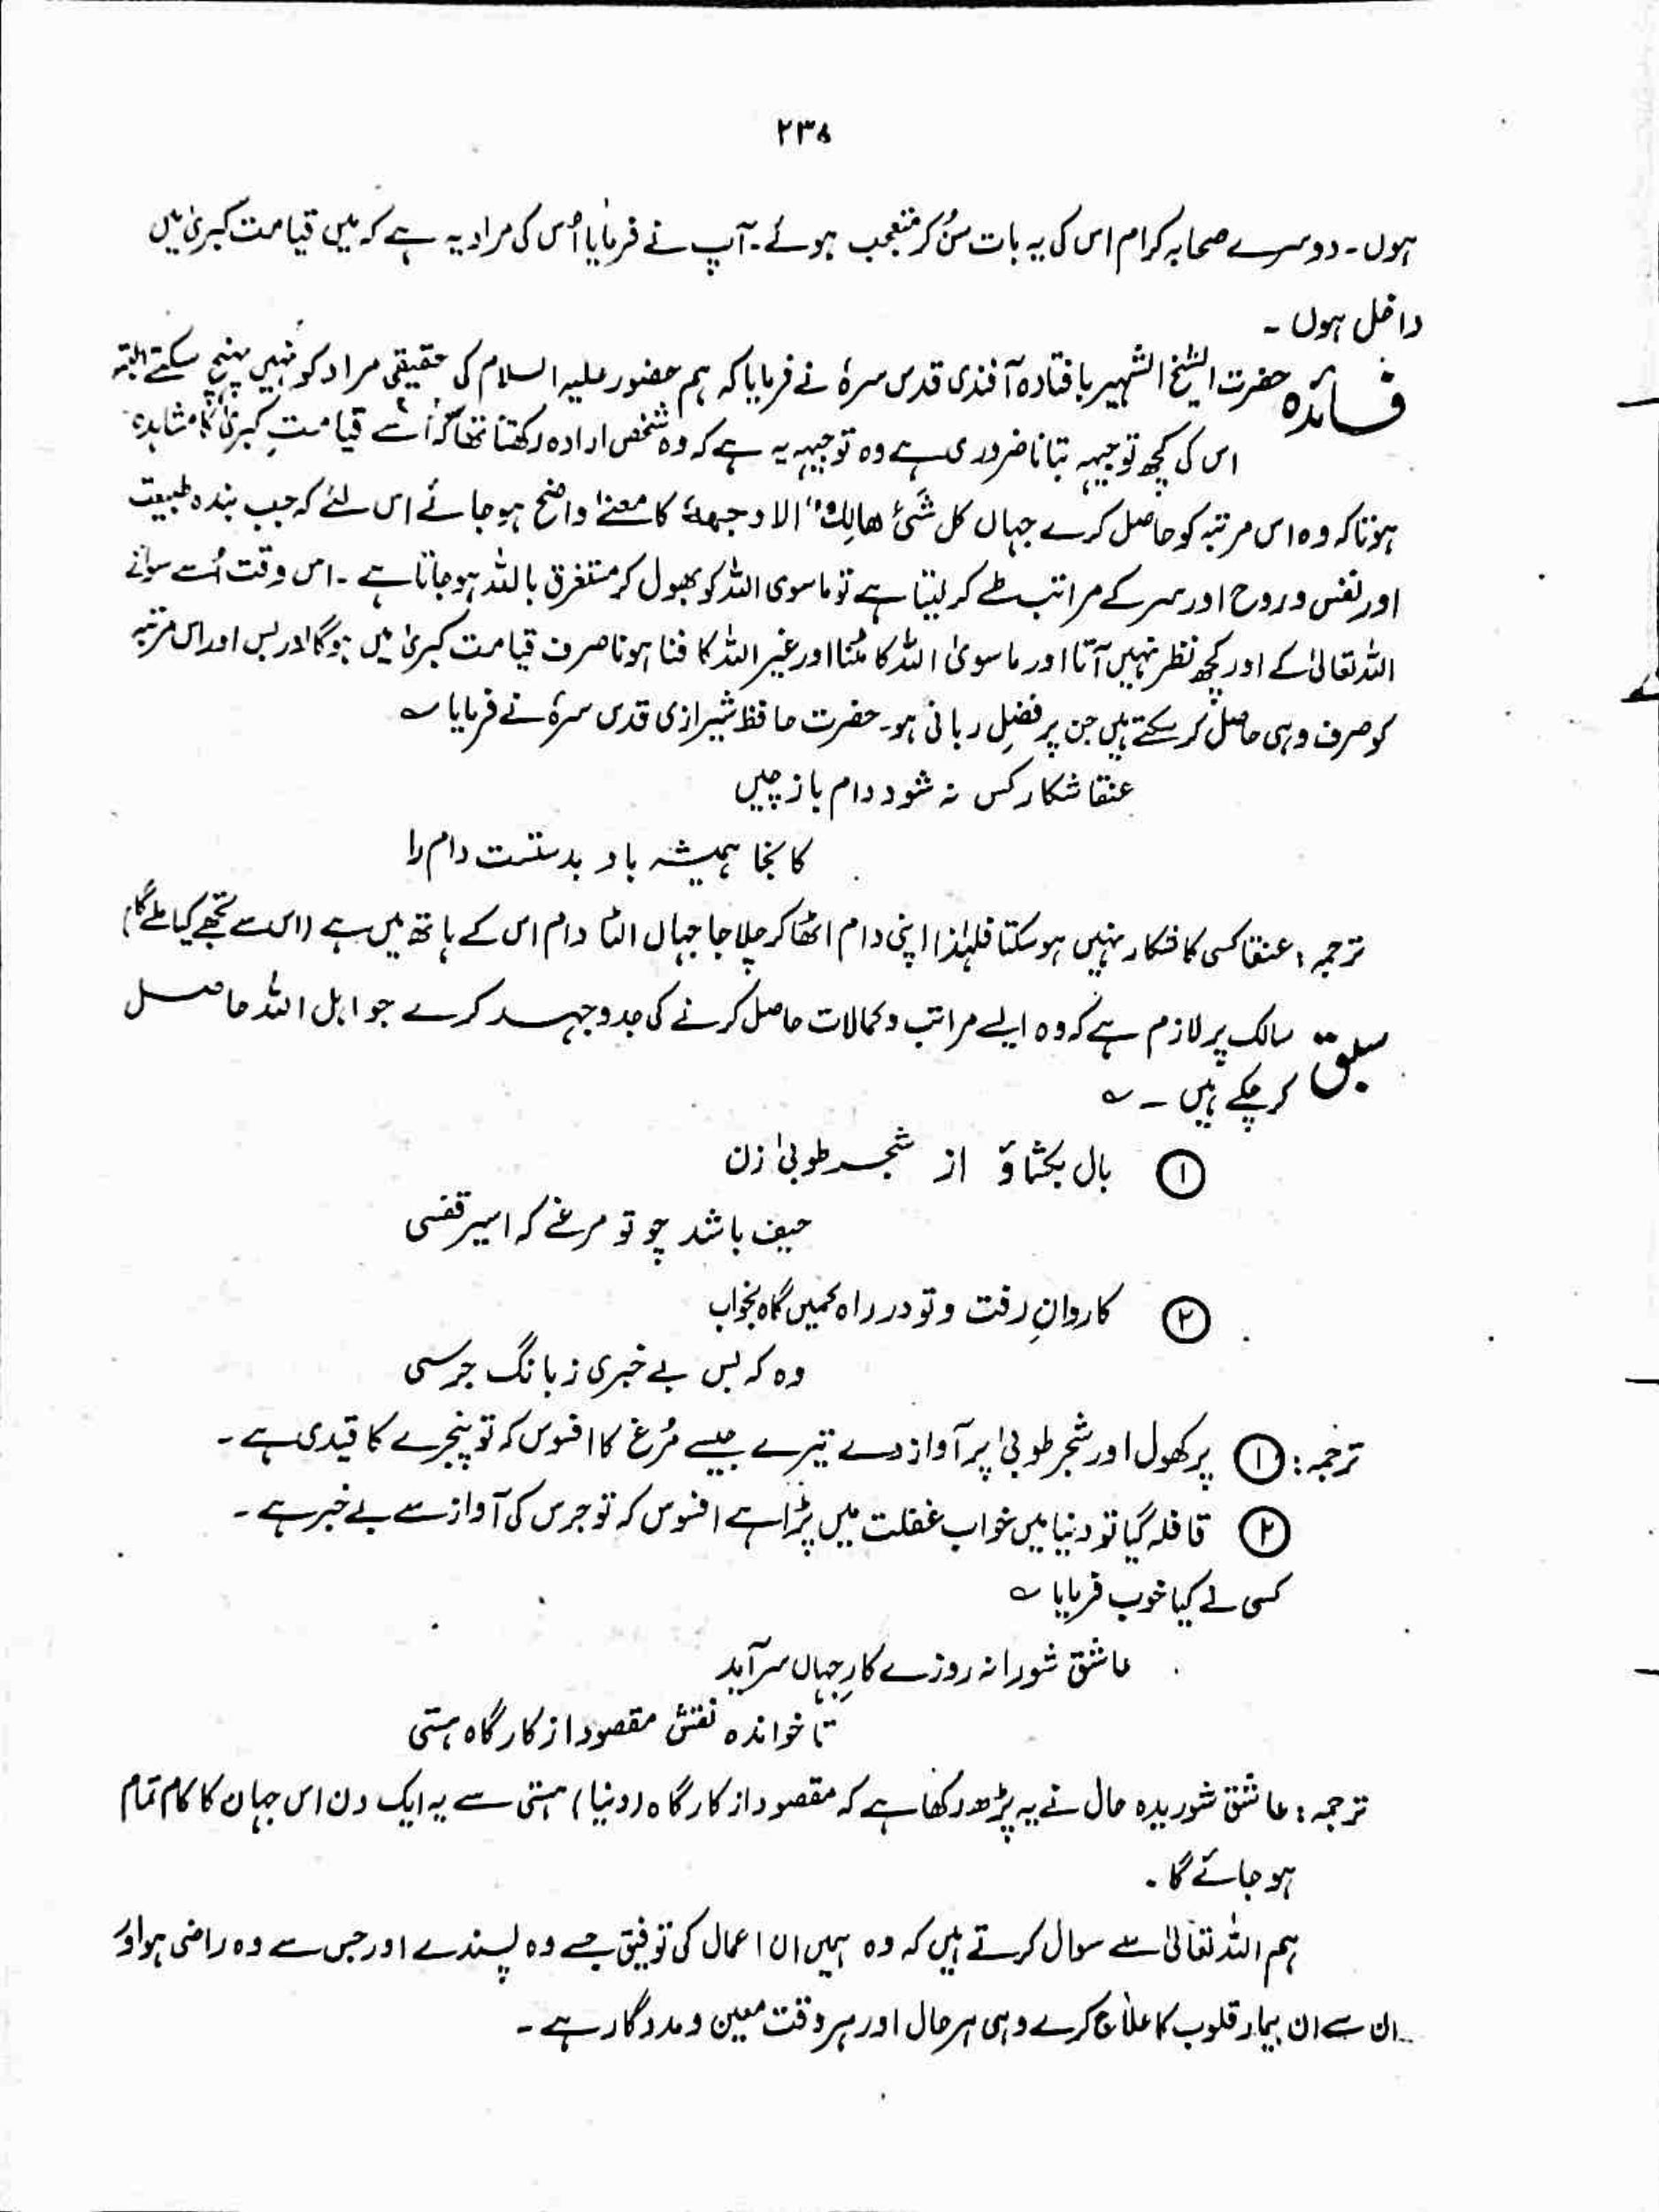 ۲۳۵
ہوں۔ دوسرے صحابہ کرام اس کی یہ بات سُن کر متعجب ہوئے۔ آپ نے فرمایا اُس کی مراد یہ ہے کہ میں قیامت کبریٰ میں
داخل ہوں ۔
فائدہ حضرت الشیخ الشہیر بافتادہ آفندی قدس سرہٗ نے فرمایا کہ ہم حضور علیہ السلام کی حقیقی مراد کو نہیں پہنچ سکتے البتہ
اس کی کچھ توجیہہ بتانا ضروری ہے وہ توجیہہ یہ ہے کہ وہ شخص ارادہ رکھتا تھا کہ اُسے قیامتِ کبریٰ کا مشاہدہ
ہوتا کہ وہ اس مرتبہ کو حاصل کرے جہاں کل شَئ ھالِكٌ الا وجھہٗ کا معنےٰ واضح ہو جائے اس لئے کہ جب بندہ طبیعت
اور نفس و روح اور سر کے مراتب طے کر لیتا ہے تو ماسوی اللہ کو بھول کر مستغرق باللہ ہو جاتا ہے ۔ اس وقت اُسے سوائے
اللہ تعالیٰ کے اور کچھ نظر نہیں آتا اور ماسویٰ اللہ کا مٹنا اور غیر اللہ کا فنا ہونا صرف قیامت کبریٰ میں ہوگا اور بس اور اس مرتبہ
کو صرف وہی حاصل کر سکتے ہیں جن پر فضلِ ربانی ہو۔ حضرت حافظ شیرازی قدس سرہٗ نے فرمایا ؎
عنقا شکار کس نہ شود دام باز چیں
کانجا ہمیشہ باد بدستست دام را
ترجمہ : عنقا کسی کا شکار نہیں ہو سکتا فلہٰذا اپنی دام اٹھا کر چلا جا جہاں الٹا دام اس کے ہاتھ میں ہے (اس سے تجھے کیا ملے گا)
سبق سالک پر لازم ہے کہ وہ ایسے مراتب و کمالات حاصل کرنے کی جدوجہد کرے جو اہل اللہ حاصل
کر چکے ہیں ۔ ؎
① بال بکشاؤ از شجر طوبیٰ زن
حیف باشد چو تو مرغے کہ اسیر قفسی
② کاروانِ رفت و تو در راہ کمیں گاہ بخواب
وہ کہ بس بے خبری ز بانگ جرسی
ترجمہ : ① پر کھول اور شجر طوبیٰ پر آواز دے تیرے جیسے مُرغ کا افسوس کہ تو پنجرے کا قیدی ہے ۔
② قافلہ گیا تو دنیا میں خواب غفلت میں پڑا ہے افسوس کہ تو جرس کی آواز سے بے خبر ہے ۔
کسی نے کیا خوب فرمایا ؎
عاشق شورانہ روزے کارِ جہاں سرآید
تا خواندہ نقش مقصود از کار گاہ ہستی
ترجمہ : عاشق شوریدہ حال نے یہ پڑھ رکھا ہے کہ مقصود از کار گاہ (دنیا) ہستی سے یہ ایک دن اس جہان کا کام تمام
ہو جائے گا ۔
ہم اللہ تعالیٰ سے سوال کرتے ہیں کہ وہ ہمیں ان اعمال کی توفیق جسے وہ پسندے اور جس سے وہ راضی ہو اور
ان سے ان بیمار قلوب کا علاج کرے وہی ہر حال اور ہر وقت معین و مددگار ہے ۔